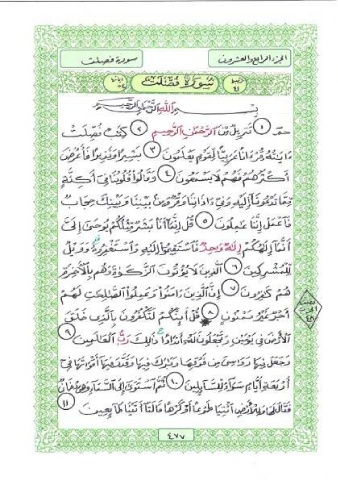 الجزء الرابع والعشرون
سورة فصلت
سورة فصلت
بسم الله الرحمن الرحيم
حم ١ تنزيل من الرحمن الرحيم ٢ كتب فصلت
ءايته قرءانا عربيا لقوم يعلمون ٣ بشيرا ونذيرا فأعرض
أكثرهم فهم لا يسمعون ٤ وقالوا قلوبنا في أكنة
مما تدعونا إليه وفي ءاذاننا وقر ومن بيننا وبينك حجاب
فاعمل إننا عملون ٥ قل إنما أنا بشر مثلكم يوحى إلي
أنما إلهكم إله وحد فاستقيموا إليه واستغفروه وويل
للمشركين ٦ الذين لا يؤتون الزكوة وهم بالأخرة
هم كفرون ٧ إن الذين ءامنوا وعملوا الصلحت لهم
أجر غير ممنون ٨ قل أئنكم لتكفرون بالذي خلق
الأرض في يومين وتجعلون له أندادا ذلك رب العلمين ٩
وجعل فيها روسي من فوقها وبرك فيها وقدر فيها أقوتها في
أربعة أيام سواء للسائلين ١٠ ثم استوى إلى السماء وهي دخان
فقال لها وللأرض ائتيا طوعا أو كرها قالتا أتينا طائعين ١١
٤٧٧